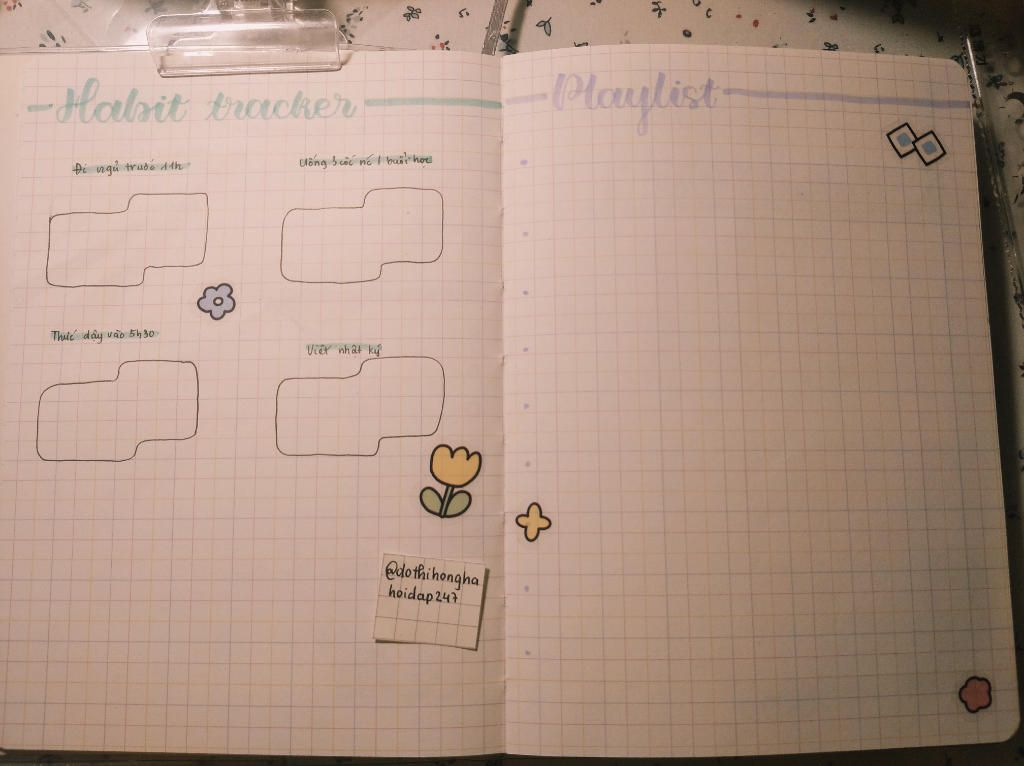 Habit tracker
Đi ngủ trước 11h
Uống 3 cốc nc / buổi học
Thức dậy vào 5h30
Viết nhật ký
@dothihongha
hoidap247
Playlist